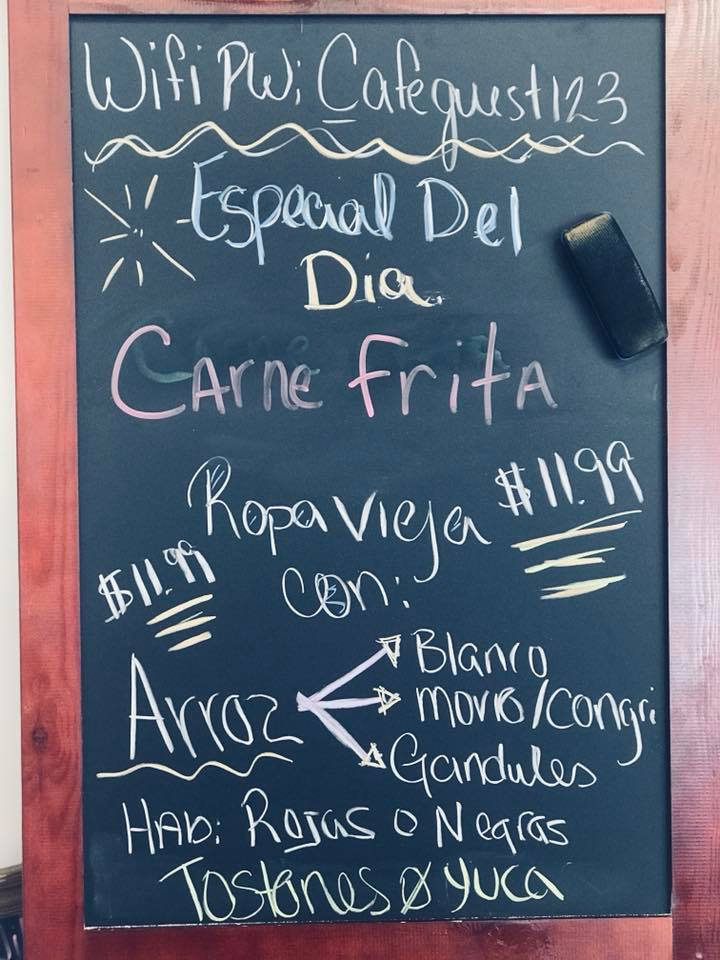 Wifi PW: Cafeguest123
Especial Del
Dia.
CArne fritA
Ropa Vieja $11.99
$11.99 con:
Arroz
Blanco
moro/congri
Gandules
HAb: Rojas o Negras
Tostones o yuca